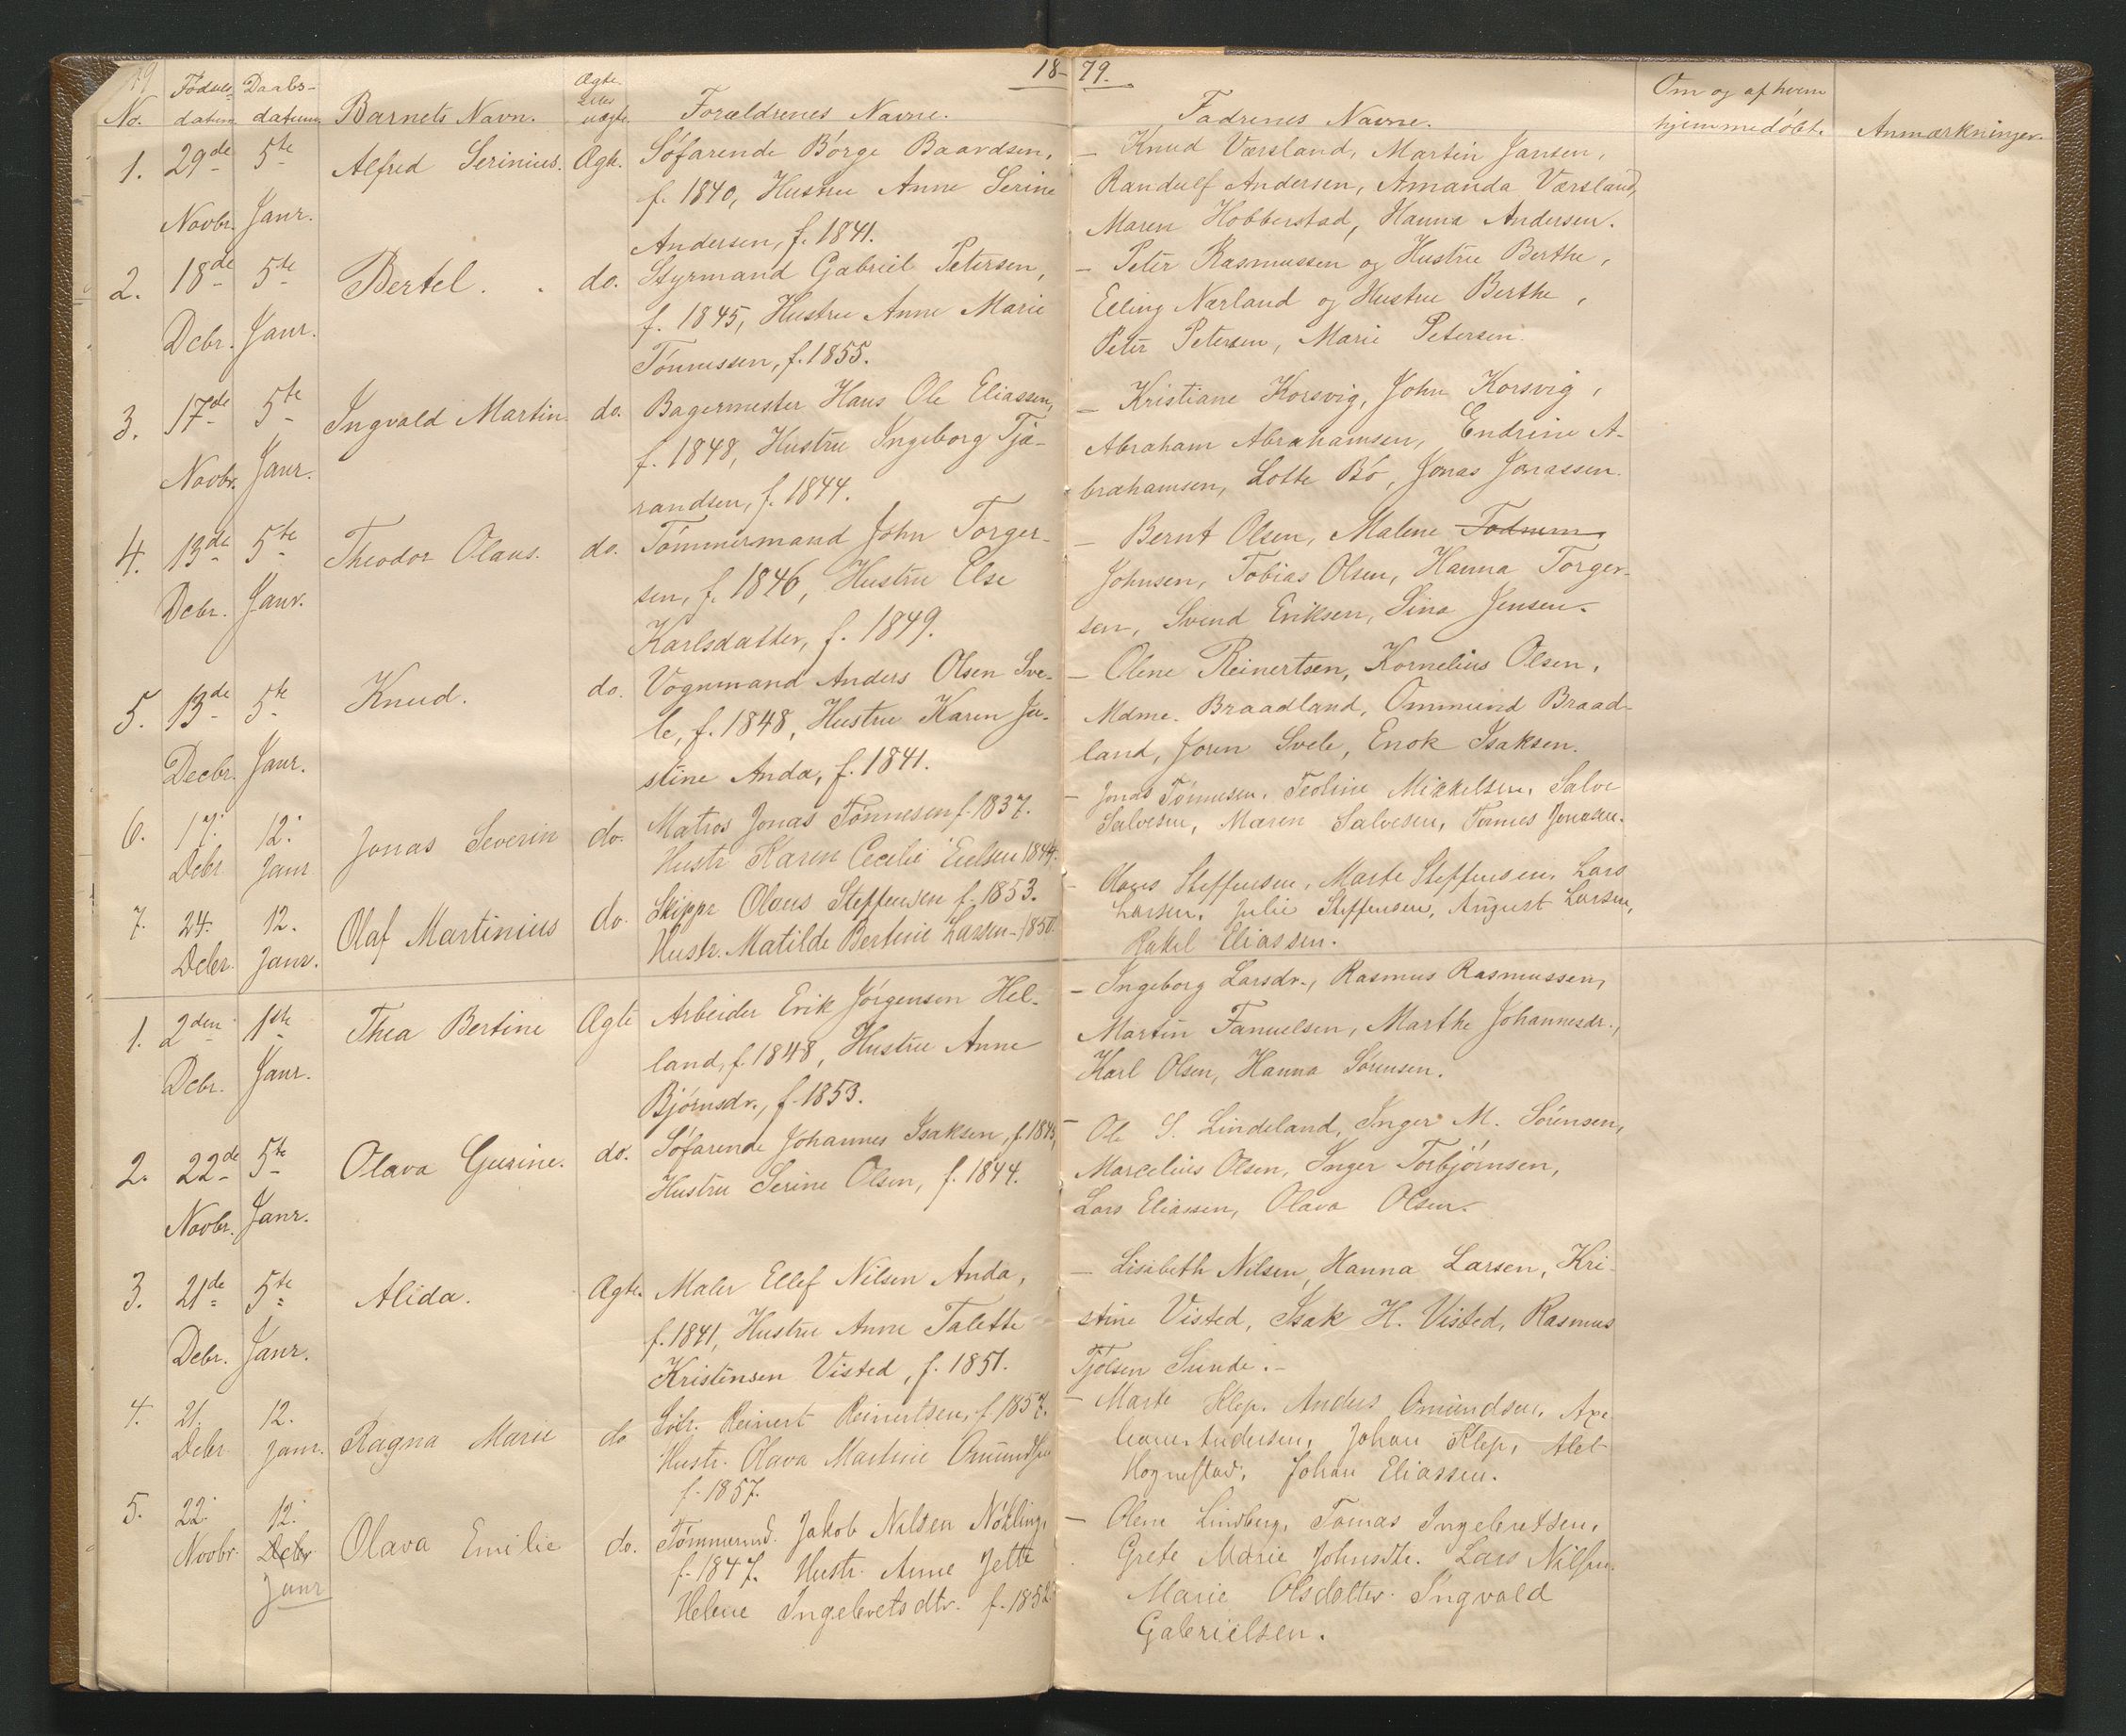 18-79.
No. Fødsels- datum Daabs- datum. Barnets Navn. Ægte eller uægte. Forældrenes Navne. Fadrenes Navne. Om og af hvem hjemmedøbt. Anmærkninger.
1. 29de Novbr. 5te Janr. Alfred Serinius. Ægte.
Søfarende Børge Baardsen,
f. 1840, Hustru Anne Serine
Andersen, f. 1841.
- Knud Værsland, Martin Jansen,
Randulf Andersen, Amanda Værsland,
Maren Hobberstad, Hanna Andersen.
2. 18de Dcbr. 5te Janr. Bertel. do.
Styrmand Gabriel Petersen,
f. 1845, Hustru Anne Marie
Tønnessen, f. 1855.
- Peter Rasmussen og Hustru Berthe,
Elling Nærland og Hustru Berthe,
Peter Petersen, Marie Petersen.
3. 17de Novbr. 5te Janr. Ingvald Martin. do.
Bagermester Hans Ole Eliassen,
f. 1848, Hustru Ingeborg Tjæ-
randsen, f. 1844.
- Kristiane Korsvig, John Korsvig,
Abraham Abrahamsen, Endrine A-
brahamsen, Lotte Bø, Jonas Jonassen.
4. 13de Dcbr. 5te Janr. Theodor Olaus. do.
Tømmermand John Torger-
sen, f. 1846, Hustru Else
Karlsdatter, f. 1849.
- Bernt Olsen, Malene Todnem,
Johnsen, Tobias Olsen, Hanna Torger-
sen, Svend Eriksen, Sina Jensen.
5. 13de Decbr. 5te Janr. Knud. do.
Vognmand Anders Olsen Sve-
le, f. 1848, Hustru Karen Ju-
stine Anda, f. 1841.
- Olene Reinertsen, Kornelius Olsen,
Mdme. Braadland, Ommund Braad-
land, Joren Svele, Enok Isaksen.
6. 17. Debr 12. Janr Jonas Severin do.
Matros Jonas Tønnesen f. 1837.
Hustr Karen Cecilie Eielsen 1844.
- Jonas Tønnesen, Teoline Mikkelsen, Salve
Salvesen, Maren Salvesen, Tønnes Jonasen.
7. 24. Debr. 12. Janr. Olaf Martinius do.
Skippr Olaus Steffensen f. 1853.
Hustr. Matilde Bertine Larsen - 1850.
- Olaus Steffensen, Marte Steffensen, Lars
Larsen, Julie Steffensen, August Larsen,
Rakel Eliassen.
1. 2den Dcbr. 1ste Janr. Thea Bertine Ægte
Arbeider Erik Jørgensen Hel-
land, f. 1848, Hustru Anne
Bjørnsdr., f. 1853.
- Ingeborg Larsdr., Rasmus Rasmussen,
Martin Fanuelsen, Marthe Johannesdr.,
Karl Olsen, Hanna Sørensen.
2. 22de Novbr. 5te Janr. Olava Gurine. do.
Søfarende Johannes Isaksen, f. 1845,
Hustru Serine Olsen, f. 1844.
- Ole S. Lindeland, Inger M. Sørensen,
Marcelius Olsen, Inger Torbjørnsen,
Lars Eliassen, Olava Olsen.
3. 21de Debr. 5te Janr. Alida. Ægte.
Maler Ellef Nilsen Anda,
f. 1841, Hustru Anne Talette
Kristensen Visted, f. 1851.
- Lisabeth Nilsen, Hanna Larsen, Kri-
stine Visted, Isak H. Visted, Rasmus
Tjølsen Sunde.
4. 21. Debr 12. Janr. Ragna Marie do
Reinert Reinertsen, f. 1857.
Hustr. Olava Martine Omundsen
f. 1857.
- Marte Klep, Anders Omundsen, Axe
Andersen, Johan Klep,
Hognestad, Johan Eliassen.
5. 22. Novbr. 12. Debr Janr Olava Emilie do.
Tømmermd. Jakob Nilsen Nøkling,
f. 1847. Hustr. Anne Jette
Helene Ingebretsdtr. f. 1852
- Olene Lindberg, Tomas Ingebretsen,
Grete Marie Johnsdtr. Lars Nilsen.
Marie Olsdatter. Ingvald
Gabrielsen.